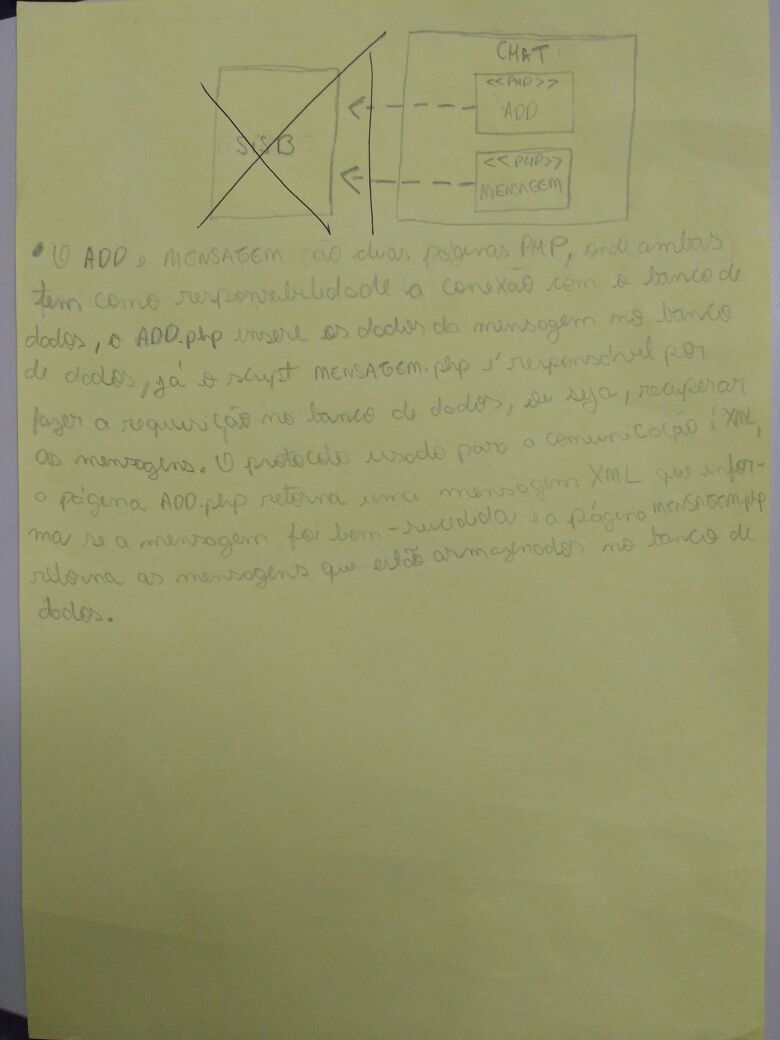 CHAT
<<PHP>>
ADD
SISB
<<PHP>>
MENSAGEM
• O ADD e MENSAGEM são duas páginas PHP, onde ambas
tem como responsabilidade a conexão com o banco de
dados, o ADD.php insere os dados da mensagem no banco
de dados, já o script MENSAGEM.php é responsável por
fazer a requisição no banco de dados, ou seja, recuperar
as mensagens. O protocolo usado para a comunicação é XML,
a página ADD.php retorna uma mensagem XML que infor-
ma se a mensagem foi bem-sucedida e a página MENSAGEM.php
retorna as mensagens que estão armazenados no banco de
dados.